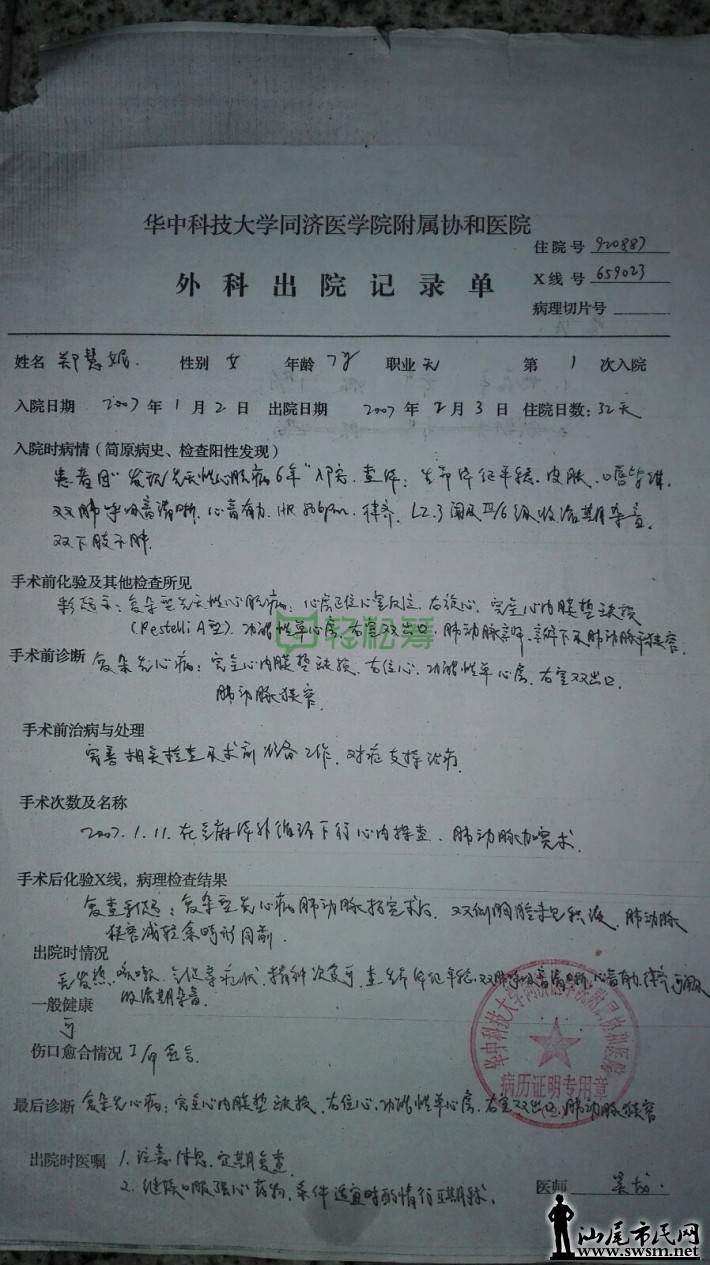 华中科技大学同济医学院附属协和医院
住院号 920887
外科出院记录单
X线号 659023
病理切片号
姓名 郑慧娟 性别 女 年龄 7岁 职业 无 第 1 次入院
入院日期 2007年1月2日 出院日期 2007年2月3日 住院日数:32天
入院时病情(简原病史、检查阳性发现)
患者因"发现先天性心脏病6年"入院.查体:生命体征平稳.皮肤、口唇
双肺呼吸音清晰.心音有力.HR 86bpm.律齐.L2.3闻及Ⅲ/6级收缩期杂音.
双下肢不肿.
手术前化验及其他检查所见
彩超示:复杂型先天性心脏病:心房正位心室反位.右旋心.完全心内膜垫缺损
(Rastelli A型).功能性单心房.右室双出口.肺动脉
轻松筹
手术前诊断 复杂先心病:完全心内膜垫缺损.右位心.功能性单心房.右室双出口.
肺动脉狭窄.
手术前治病与处理
完善相关检查及术前准备工作.对症支持治疗.
手术次数及名称
2007.1.11.在全麻体外循环下行心内探查、肺动脉加宽术.
手术后化验X线,病理检查结果
复查彩超:复杂型先心病肺动脉加宽术后.双侧胸腔未见积液.肺动脉
狭窄减轻余情形同前.
出院时情况
无发热.咳嗽. 查生命体征平稳.双肺呼吸音清晰.心音有力.律齐可闻及
收缩期杂音.
一般健康
可
伤口愈合情况 Ⅱ/甲愈合.
华中科技大学同济医学院附属协和医院
病历证明专用章
最后诊断 复杂先心病:完全心内膜垫缺损.右位心.功能性单心房.右室双出口.肺动脉狭窄
出院时医嘱 1.注意休息.定期复查.
2.继续口服强心药物.条件适宜时酌情行Ⅱ期手术.
医师
汕尾市民网
www.swsm.net